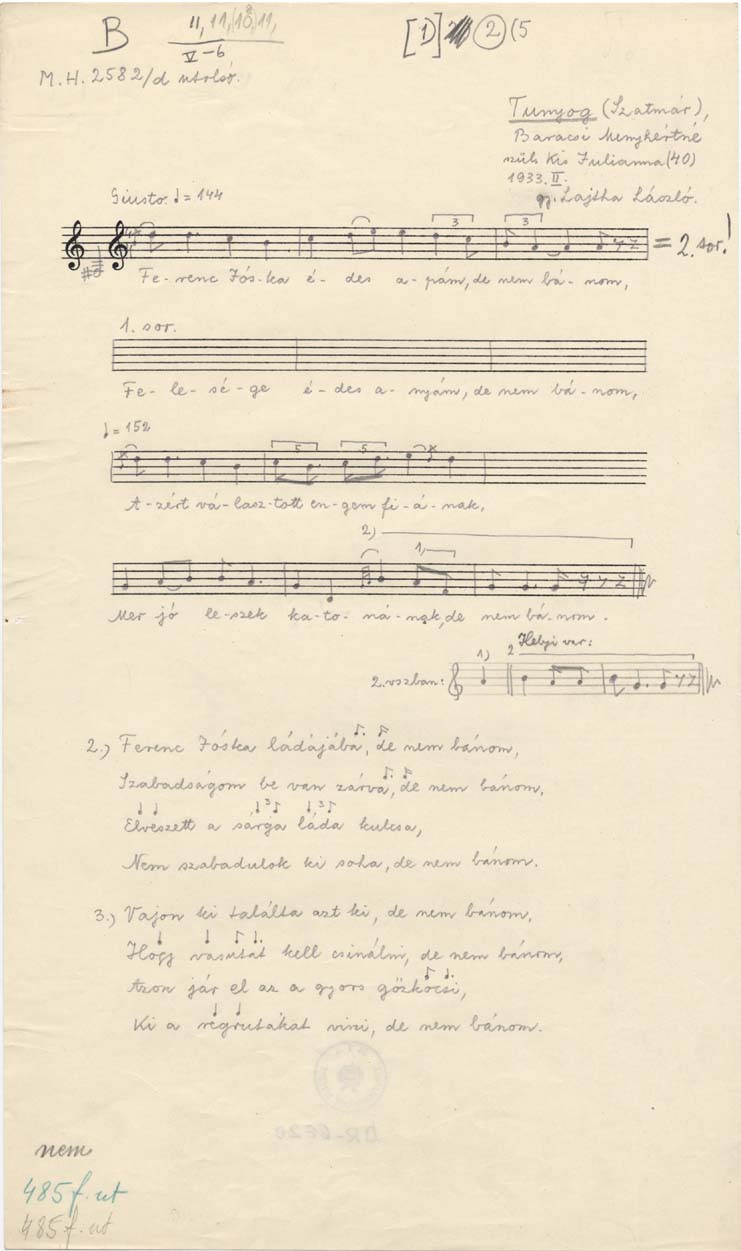 B
11, 11, (10,) 11,
8
V-6
[1] 2 (5
M.H. 2582/d utolsó.
Tunyog (Szatmár),
Baracsi Menyhértné
szül. Kis Julianna (40)
1933. II.
gy. Lajtha László.
Giusto. ♩= 144
= 2. sor!
Fe-renc Jós-ka é-des a-pám, de nem bá-nom,
1. sor.
Fe-le-sé-ge é-des a-nyám, de nem bá-nom,
♩= 152
A-zért vá-lasz-tott en-gem fi-á-nak,
2)
1)
Mer jó le-szek ka-to-ná-nak, de nem bá-nom.
Helyi var:
2. vszban: 1) 2
2.) Ferenc Jóska ládájába, de nem bánom,
Szabadságom be van zárva, de nem bánom,
Elveszett a sárga láda kulcsa,
Nem szabadulok ki soha, de nem bánom.
3.) Vajon ki találta azt ki, de nem bánom,
Hogy vasutat kell csinálni, de nem bánom,
Azon jár el az a gyors gőzkocsi,
Ki a regrutákat viszi, de nem bánom.
nem
485 f. ut
485 f. ut